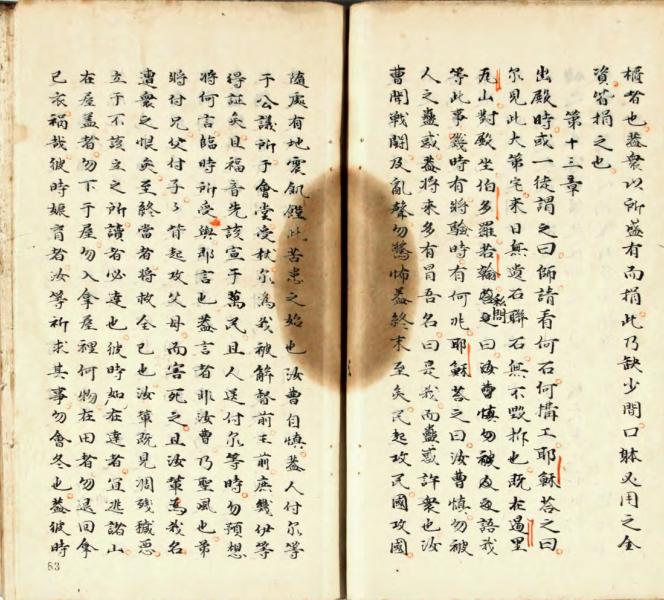 櫃者也蓋衆以所盛有而捐此乃缺少閒口躰必用之全
資皆捐之也
第十三章
出殿時或一徒謂之曰師請看何石何搆工耶穌荅之曰
尔見此大第宅来日無遺石聯石無不毀拆也既在過里
瓦山對殿坐伯多羅若翰
私問
曰汝曹慎勿被
語我
等此事幾時有將驗時有何兆耶穌荅之曰汝曹慎勿被
人之蠱惑蓋将来多有冒吾名曰是我而蠱惑許衆也汝
曹聞戦鬪及亂聲勿驚怖蓋終未至矣民起攻民國攻國
隨處有地震飢饉此苦患之始也汝曹自慎蓋人付尔等
于公議所于會堂受杖尔為我被解督前王前庶幾伊等
得証矣且福音先該宣于萬民且人送付尔等時勿預想
將何言臨時所受與即言也蓋言者非汝曹乃聖風也弟
将付兄父付子子背起攻父母而害死之且汝軰為我名
遭衆之恨矣至終當者将救全已也汝軰既見凋殘穢惡
立于不該立之所讀者必達也彼時如在達者宜逃諸山
在屋蓋者勿下于屋勿入拿屋裡何物在田者勿退回拿
已衣禍哉彼時娠育者汝等祈求其事勿會冬也蓋彼時
53